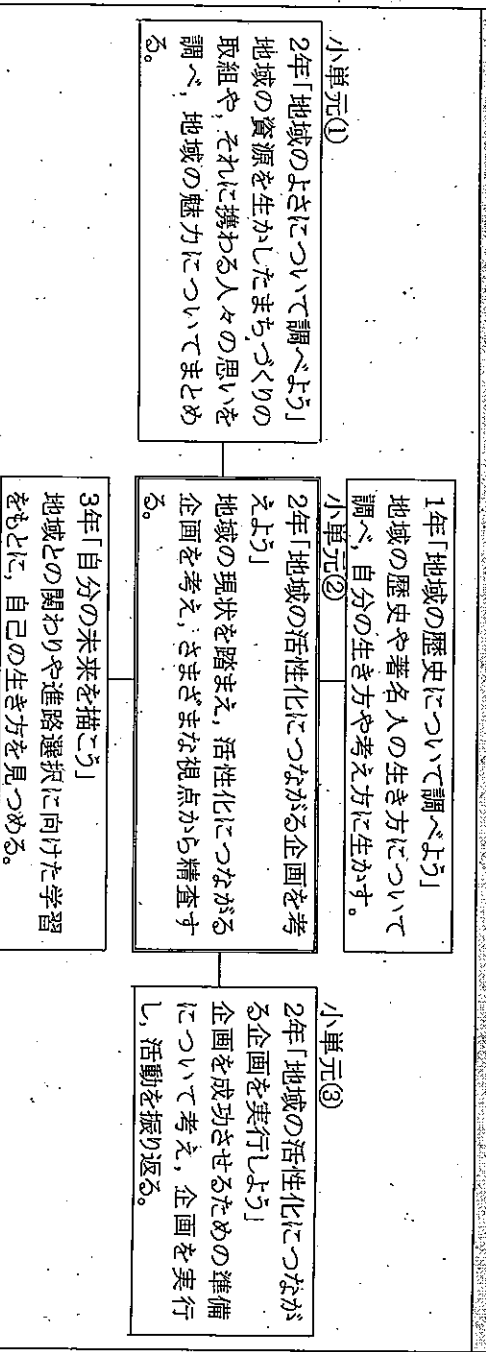 1年「地域の歴史について調べよう」
地域の歴史や著名人の生き方について
調べ,自分の生き方や考え方に生かす。
小単元①
2年「地域のよさについて調べよう」
地域の資源を生かしたまちづくりの
取組や,それに携わる人々の思いを
調べ,地域の魅力についてまとめ
る。
小単元②
2年「地域の活性化につながる企画を考
えよう」
地域の現状を踏まえ,活性化につながる
企画を考え,さまざまな視点から精査す
る。
小単元③
2年「地域の活性化につなが
る企画を実行しよう」
企画を成功させるための準備
について考え,企画を実行
し,活動を振り返る。
3年「自分の未来を描こう」
地域との関わりや進路選択に向けた学習
をもとに,自己の生き方を見つめる。